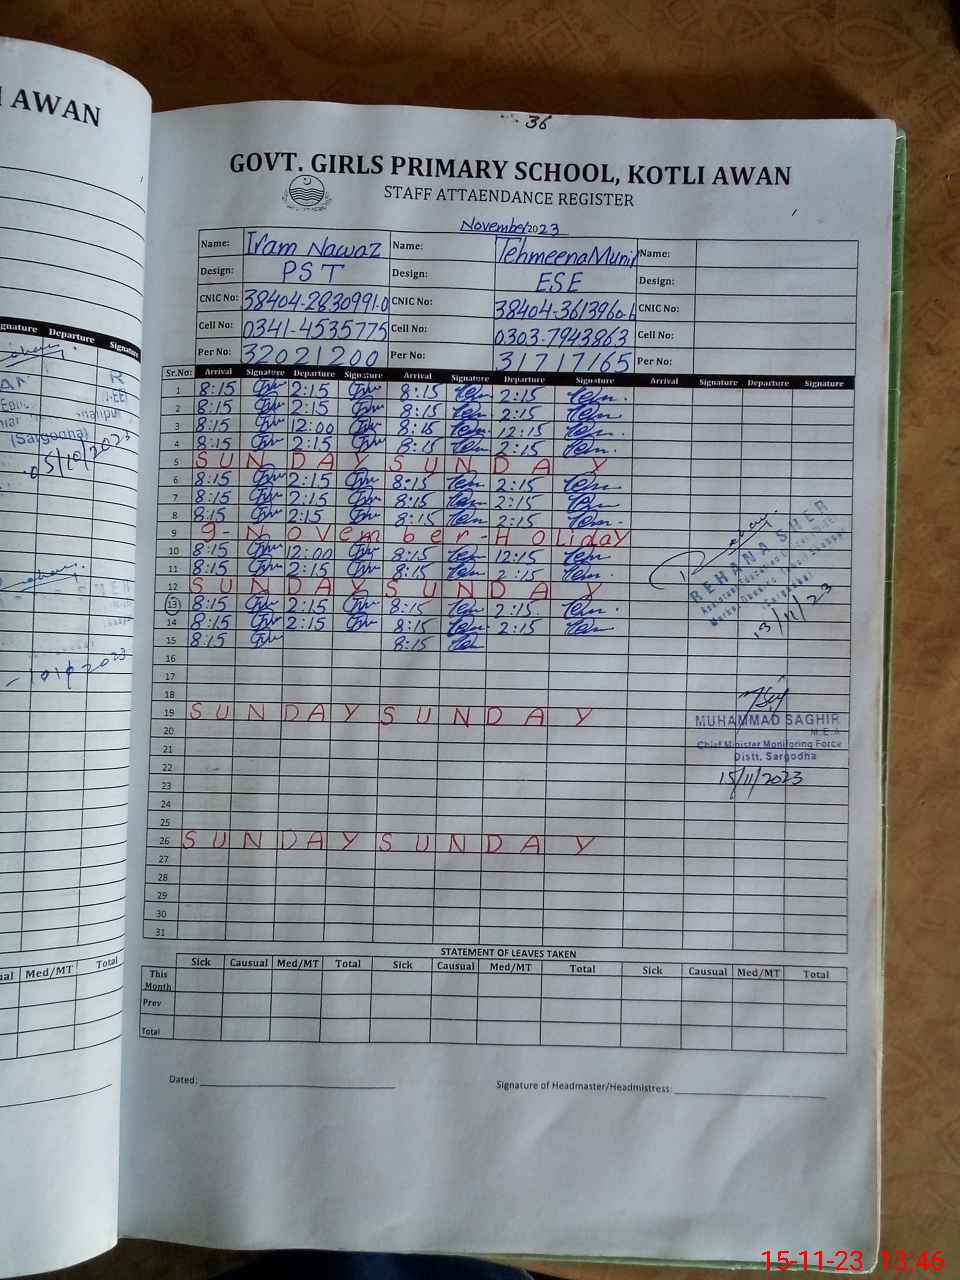 I AWAN
36
GOVT. GIRLS PRIMARY SCHOOL, KOTLI AWAN
STAFF ATTAENDANCE REGISTER
November 2023
Name: Iram Nawaz Name: Tehmeena Munir Name:
Design: PST Design: ESE Design:
CNIC No: 38404-2830991-0 CNIC No: 38404-3613960- CNIC No:
Cell No: 0341-4535775 Cell No: 0303-7943863 Cell No:
Per No: 32021200 Per No: 31717165 Per No:
Sr.No: Arrival Signature Departure Signature Arrival Signature Departure Signature Arrival Signature Departure Signature
1 8:15 2:15 8:15 Tem 2:15 Tem.
2 8:15 2:15 8:15 Tem 2:15 Tem.
3 8:15 12:00 8:15 Tem 12:15 Tem.
4 8:15 2:15 8:15 Tem 2:15 Tem.
5 SUNDAY SUNDAY
6 8:15 2:15 8:15 Tem 2:15 Tem.
7 8:15 2:15 8:15 Tem 2:15 Tem
8 8:15 2:15 8:15 Tem 2:15 Tem.
9 9-November-Holiday
10 8:15 12:00 8:15 Tem 12:15 Tem
11 8:15 2:15 8:15 Tem 2:15 Tem.
12 SUNDAY SUNDAY
13 8:15 2:15 8:15 Tem 2:15 Tem.
14 8:15 2:15 8:15 Tem 2:15 Tem
15 8:15 8:15 Tem
16
17
18
19 SUNDAY SUNDAY
20
21
22
23
24
25
26 SUNDAY SUNDAY
27
28
29
30
31
REHANA SMER
13/11/23
MUHAMMAD SAGHIR
M.E.A
Chief Minister Monitoring Force
Distt. Sargodha
15/11/2023
STATEMENT OF LEAVES TAKEN
Sick Causual Med/MT Total Sick Causual Med/MT Total Sick Causual Med/MT Total
This Month
Prev
Total
Dated: Signature of Headmaster/Headmistress:
Signature Departure Signature
(Sargodha)
05/10/2023
Med/MT Total
15-11-23 13:46